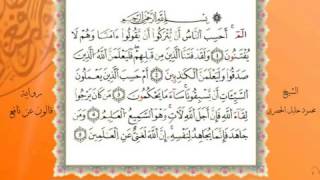 بِسْمِ اللَّهِ الرَّحْمَٰنِ الرَّحِيمِ
الٓمٓ أَحَسِبَ النَّاسُ أَنْ يُتْرَكُوا أَنْ يَقُولُوا ءَامَنَّا وَهُمْ لَا
يُفْتَنُونَ وَلَقَدْ فَتَنَّا الَّذِينَ مِنْ قَبْلِهِمْ فَلَيَعْلَمَنَّ اللَّهُ الَّذِينَ
صَدَقُوا وَلَيَعْلَمَنَّ الْكَٰذِبِينَ أَمْ حَسِبَ الَّذِينَ يَعْمَلُونَ
السَّيِّـَٔاتِ أَنْ يَسْبِقُونَا سَآءَ مَا يَحْكُمُونَ مَنْ كَانَ يَرْجُوا
لِقَآءَ اللَّهِ فَإِنَّ أَجَلَ اللَّهِ لَآتٍ وَهُوَ السَّمِيعُ الْعَلِيمُ وَمَنْ
جَٰهَدَ فَإِنَّمَا يُجَٰهِدُ لِنَفْسِهِ إِنَّ اللَّهَ لَغَنِيٌّ عَنِ الْعَٰلَمِينَ
الشيخ
محمود خليل الحصري
رواية
قالون عن نافع